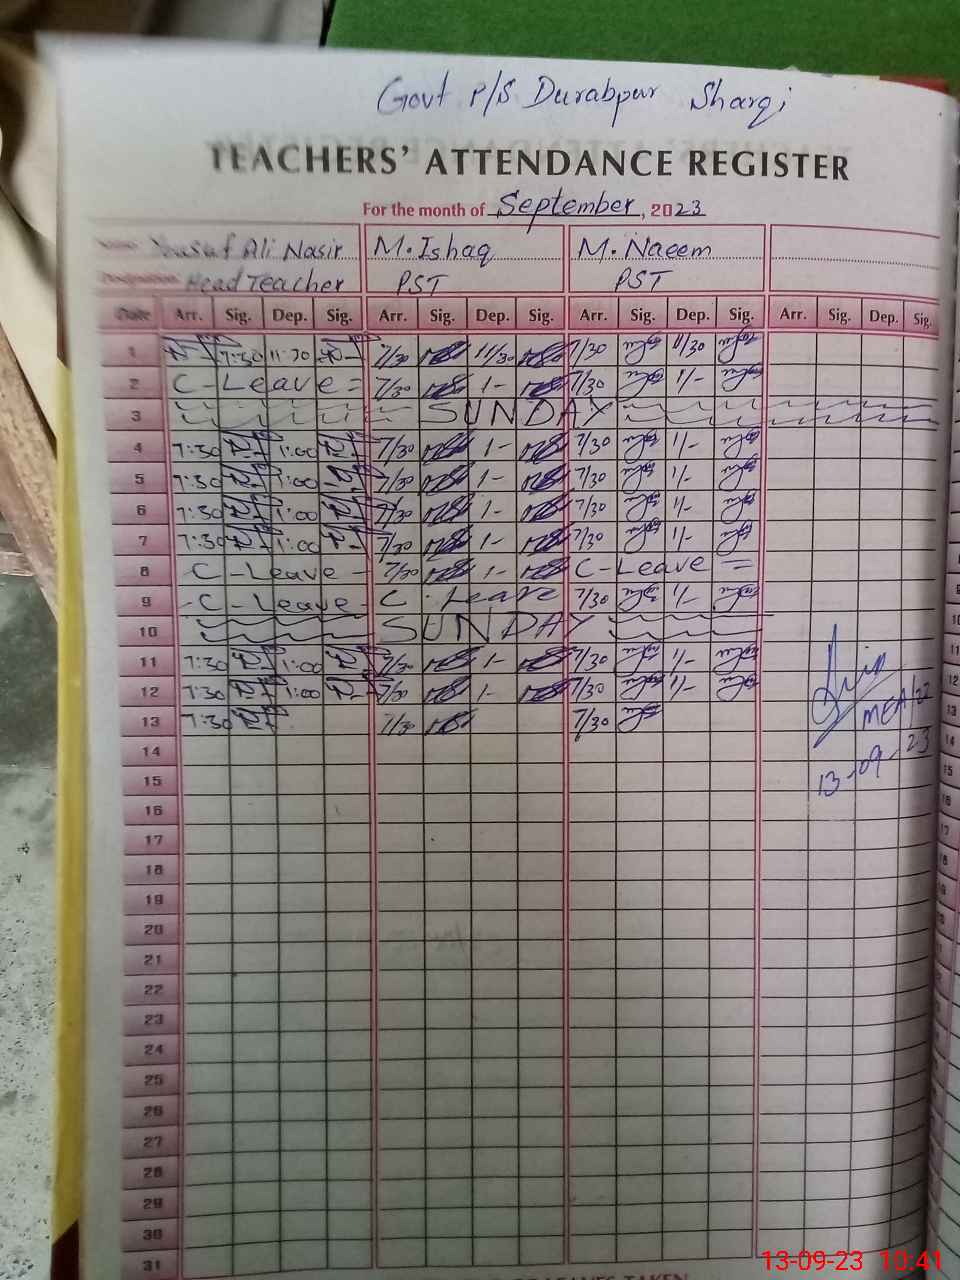 Govt P/S Durabpur Sharqi
TEACHERS' ATTENDANCE REGISTER
For the month of September, 2023
Name Yousaf Ali Nasir M. Ishaq M. Naeem
Designation Head Teacher PST PST
Date Arr. Sig. Dep. Sig. Arr. Sig. Dep. Sig. Arr. Sig. Dep. Sig. Arr. Sig. Dep. Sig.
1 7:30 11:30 7/30 11/30 7/30 11/30
2 C-Leave = 7/30 1- 7/30 1/-
3 SUNDAY
4 7:30 1:00 7/30 1- 7/30 1/-
5 7:30 1:00 7/30 1- 7/30 1/-
6 7:30 1:00 7/30 1- 7/30 1/-
7 7:30 1:00 7/30 1- 7/30 1/-
8 C-Leave - 7/30 1- C-Leave =
9 -C-Leave- C-Leave 7/30 1/-
10 SUNDAY
11 7:30 1:00 7/30 1- 7/30 1/-
12 7:30 1:00 7/30 1- 7/30 1/-
13 7:30 7/30 7/30
MEA/22
13-09-23
14
15
16
17
18
19
20
21
22
23
24
25
26
27
28
29
30
31
13-09-23 10:41